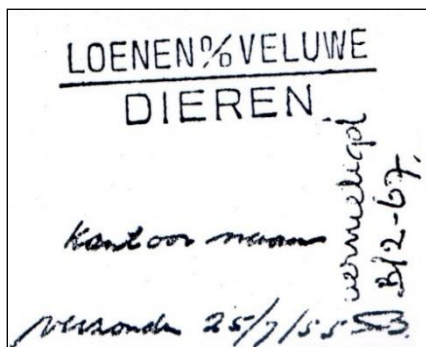 LOENEN % VELUWE
DIEREN
kantoor naam
verzonden 25/7/55
vernietigd
3/2-67.